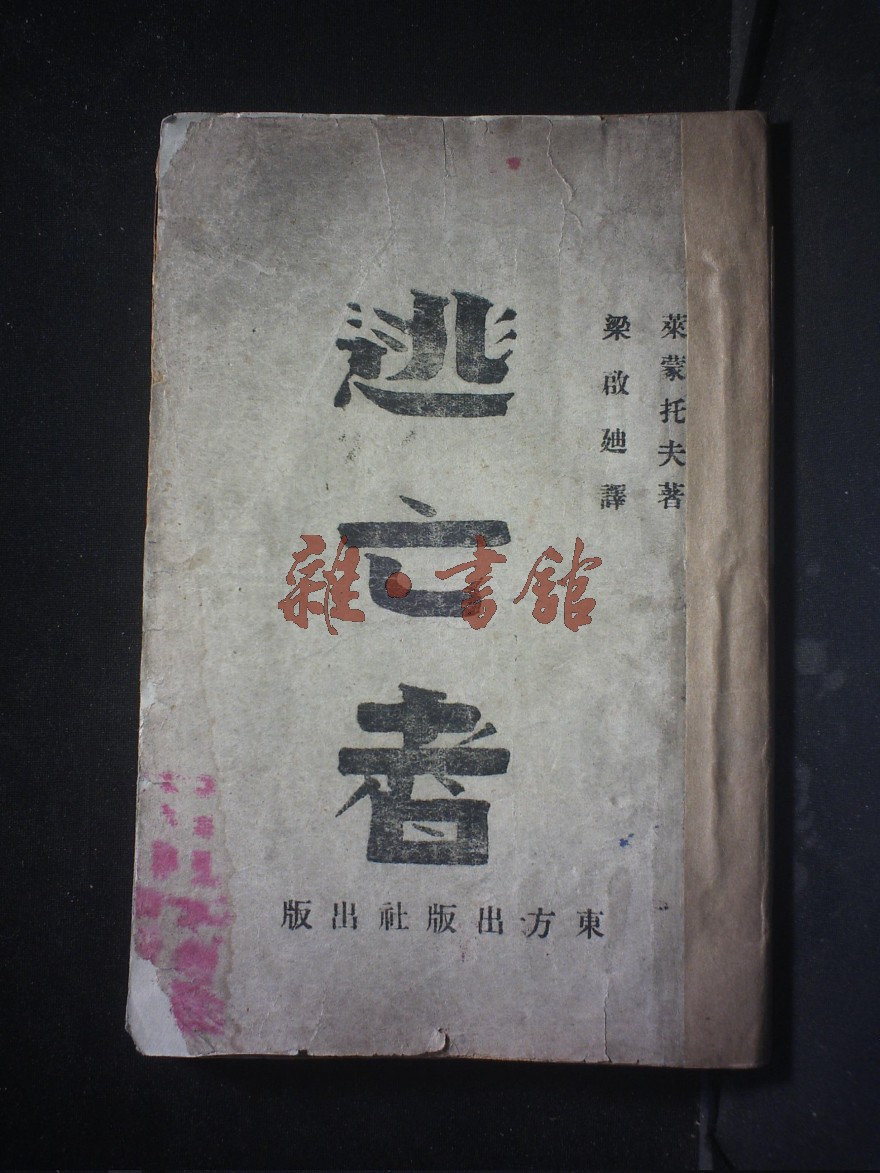 萊蒙托夫著
梁啟迪譯
逃亡者
東方出版社出版
雜·書館